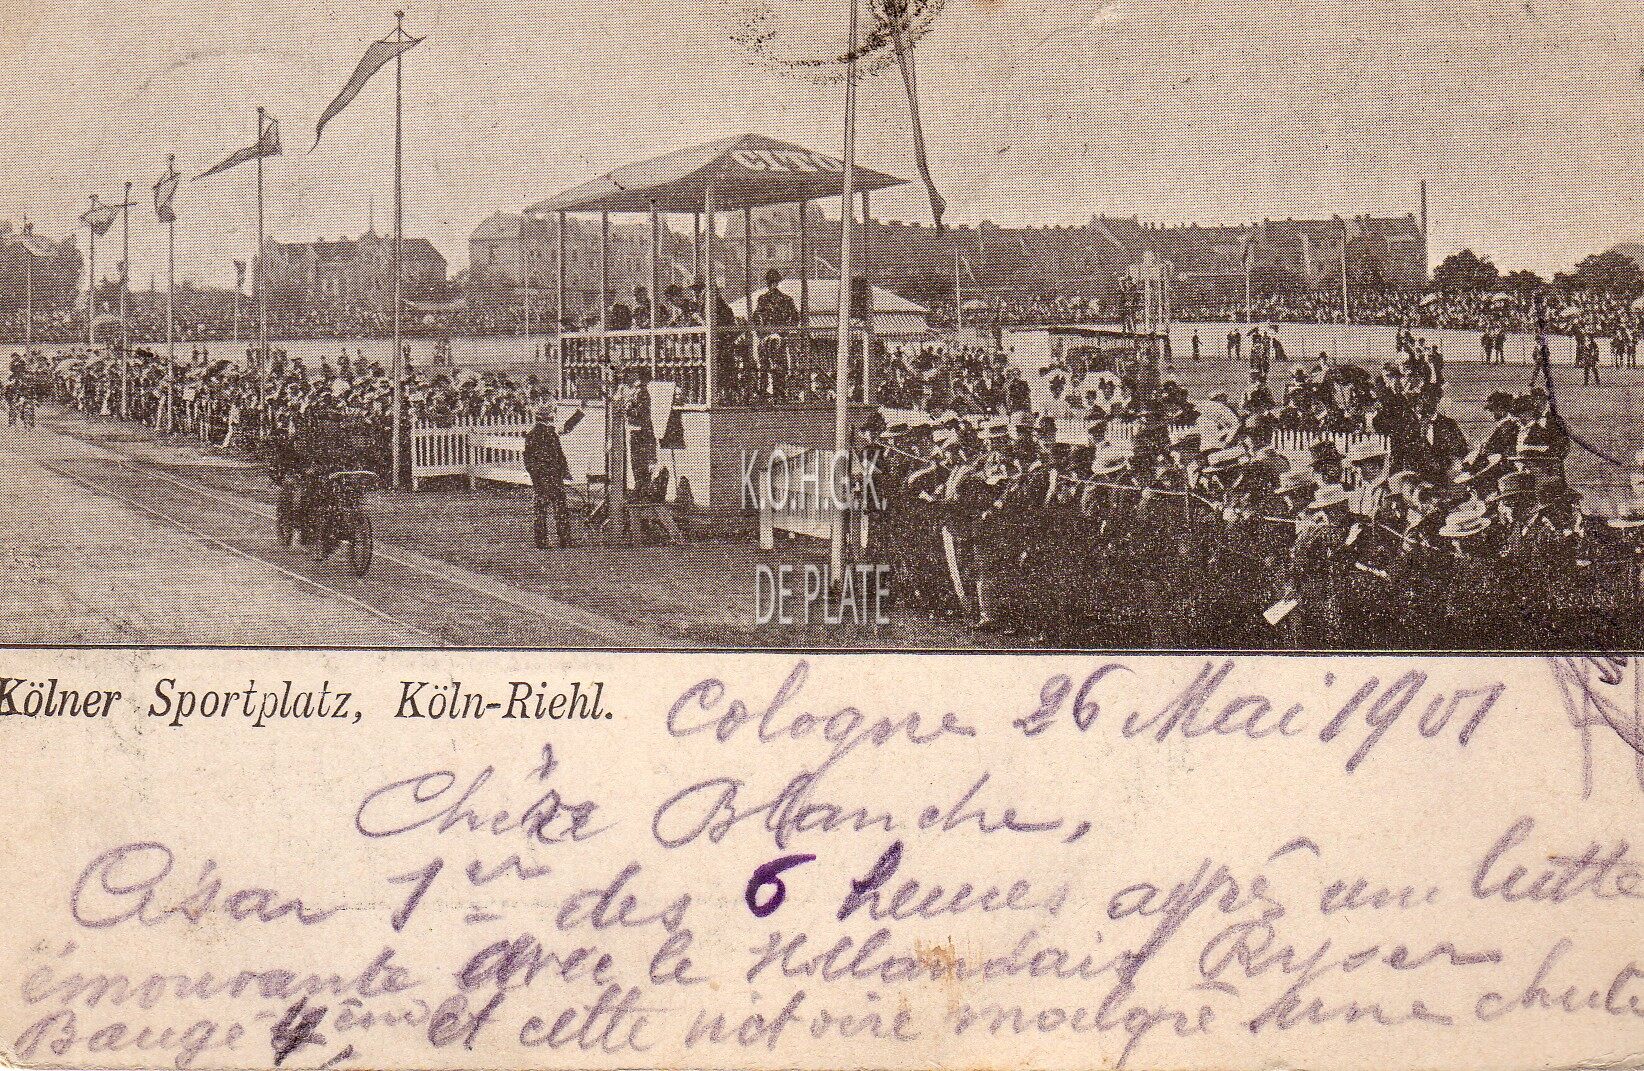 K.O.H.G.K.
DE PLATE
Kölner Sportplatz, Köln-Riehl.
Cologne 26 Mai 1901
Chère Blanche,
César 1er des 6 heures après une lutte
émouvante avec le Hollandais Ryser
Baugé et cette victoire malgré une chute